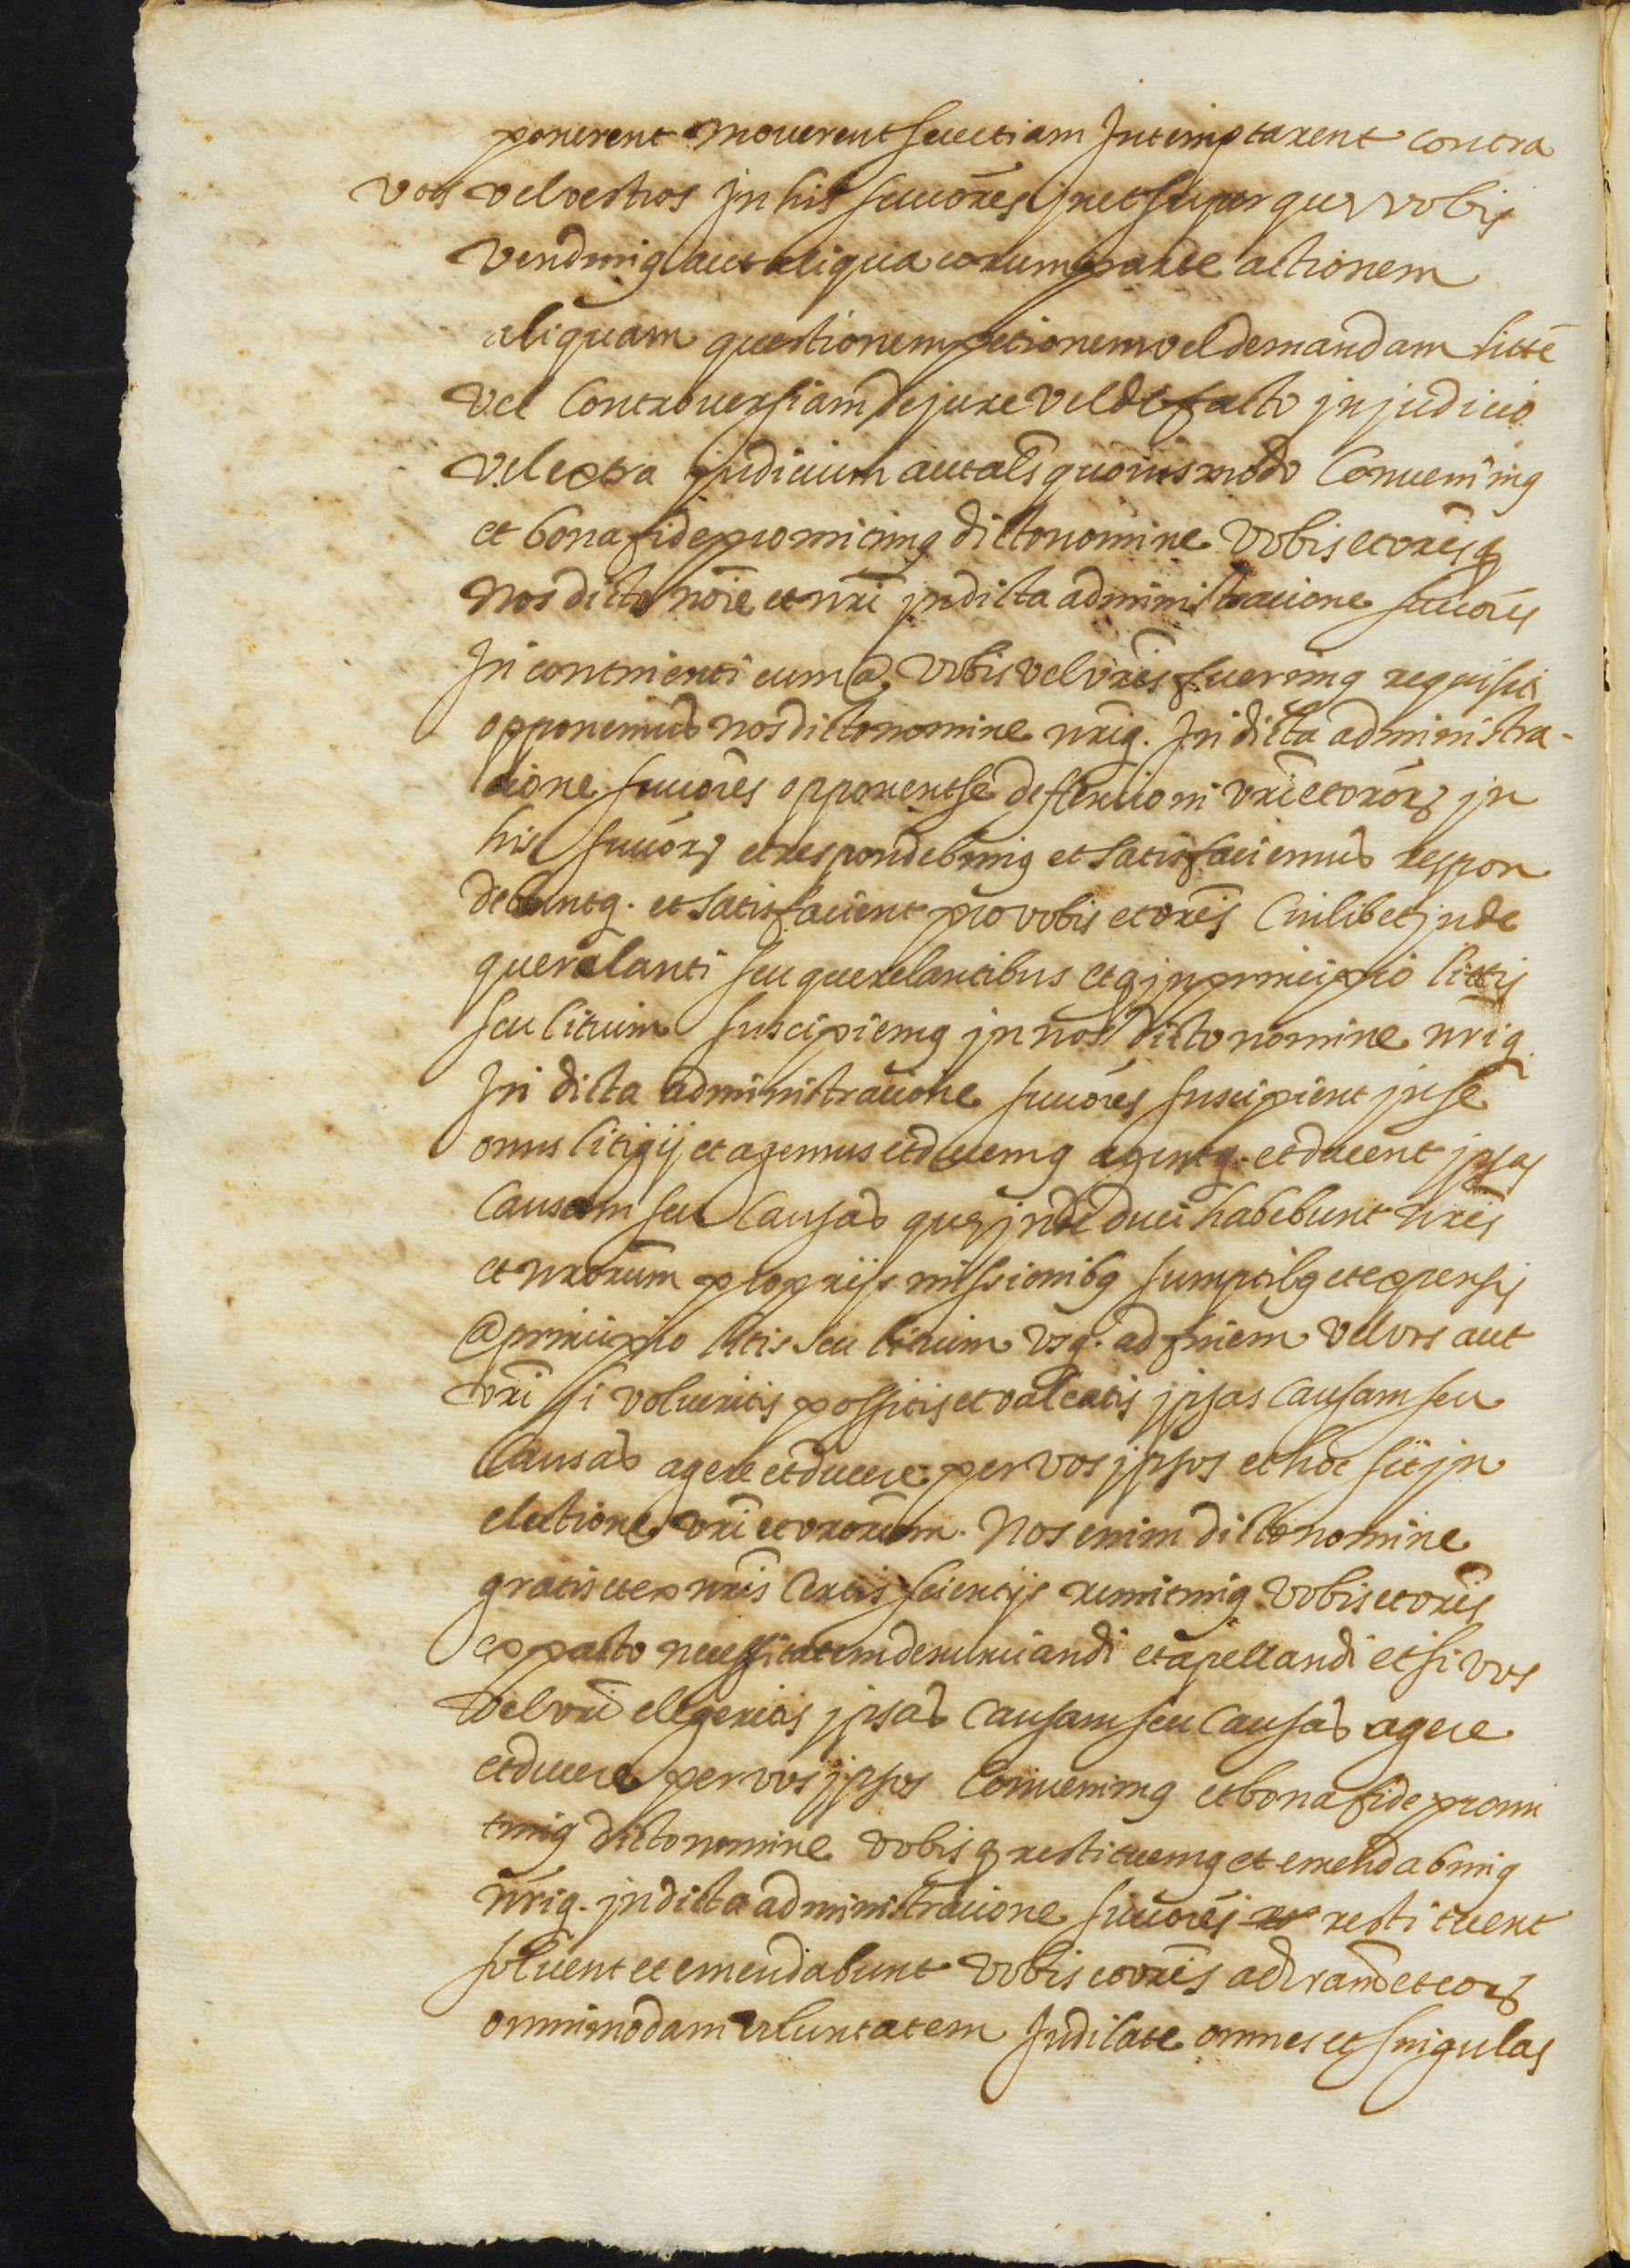 ponerent mouerent seu etiam Intemptarent contra
vos vel vestros in his succōres in et super quę vobis
vendimꝰ aut aliqua eorum parte actionem
aliquam questionem peticionem vel demandam littē
vel Controuersiam de jure vel de facto in judicio
vel extra judicium aut als̄ quouismodo Conuenimꝰ
et bona fide promitimꝰ dicto nomine vobis et vr̄is ꝙ
Nos dicto nōie et nr̄i in dicta administracione succōres
In continenti cum a vobis vel vr̄is fuerimꝰ requisiti
opponemus nos dicto nomine nr̄iq. In dicta administra-
cione succōres opponent se defencioni vr̄i et vr̄or̄ꝝ in
his succōrꝝ et respondebimꝰ et satisfaciemus respon
debuntq. et satisfacient pro vobis et vr̄is Cuilibet inde
querelanti seu querelantibus et ꝙ in principio littis
seu litium suscipiemꝰ in nos dicto nomine nr̄iq.
In dicta administracione succōres suscipient in se
onus litigij et agemus et ducemꝰ agentq. et ducent ipsas
Causam seu Causas quę inde duci habebunt nr̄is
et nr̄orum proprijs missionibꝰ sumptibꝰ et expensis
a principio litis seu litium vsq. ad finem vel vos aut
vr̄i si volueritis possitis et valeatis ipsas Causam seu
Causas agere et ducere per vos ipsos et hoc sit in
electione vr̄i et vr̄orum. Nos enim dicto nomine
gratis et ex nr̄is Certis scientijs remitimꝰ vobis et vr̄is
ex pacto necessitatem denunciandi et apellandi et si vos
vel vr̄i elegeritis ipsas Causam seu Causas agere
et ducere per vos ipsos Conuenimꝰ et bona fide promi
timꝰ dicto nomine vobis ꝙ restituemꝰ et emendabimꝰ
nr̄iq. in dicta administracione succōres restituent
soluent et emendabunt vobis et vr̄is ad vr̄am et eorꝝ
omnimodam voluntatem Indilate omnes et singulas